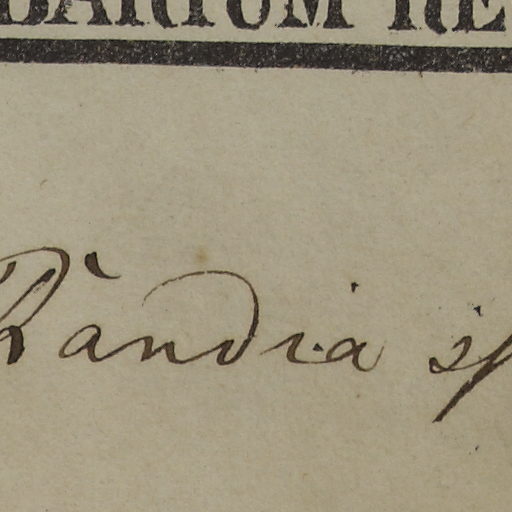 BARIUM RE
Randia sp